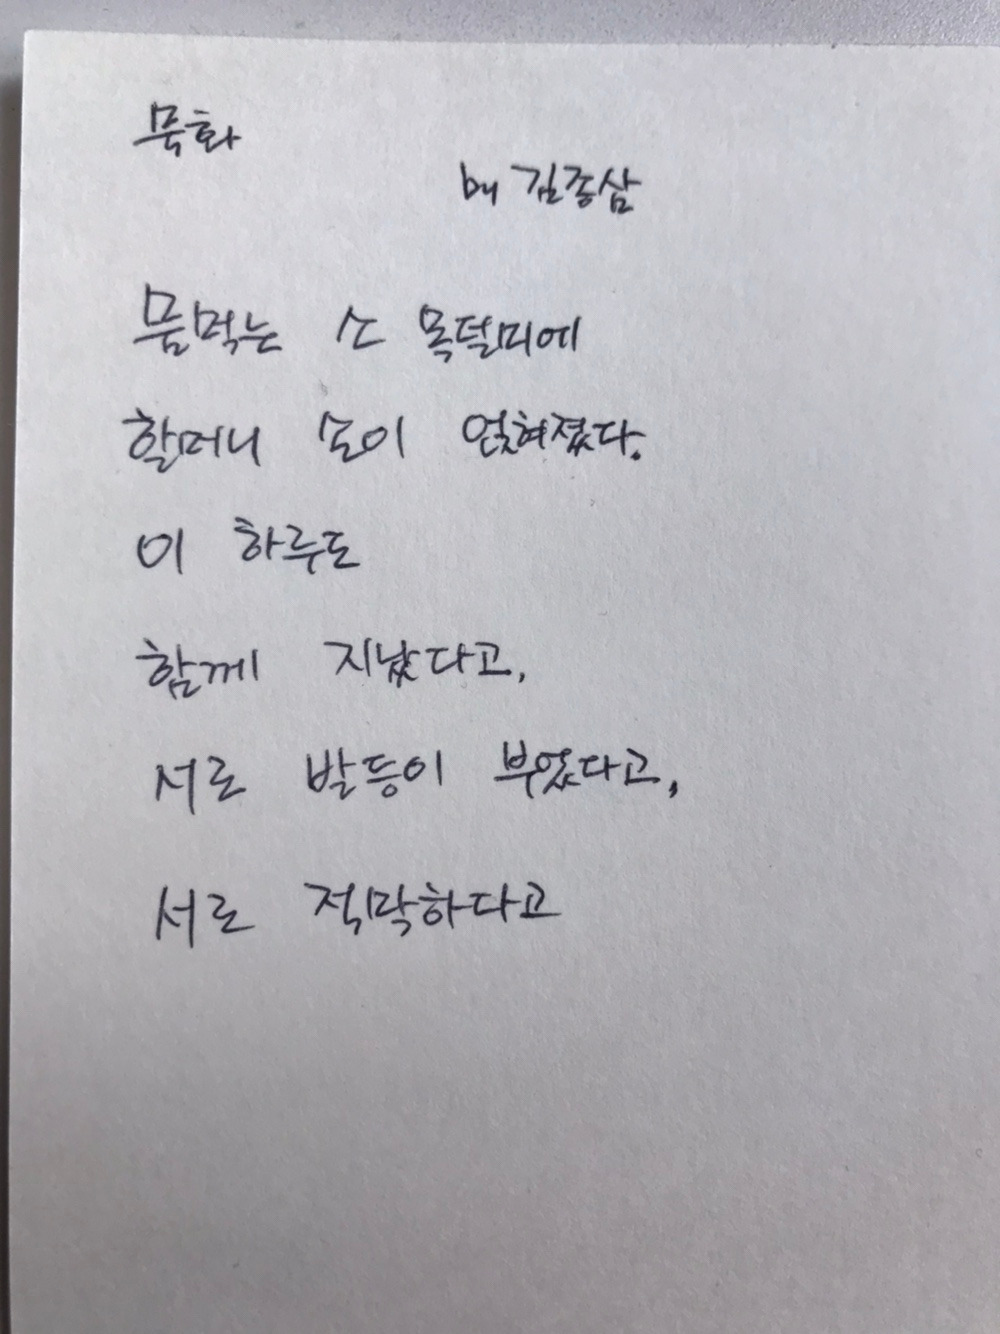 묵화
by 김종삼
물먹는 소 목덜미에
할머니 손이 얹혀졌다.
이 하루도
함께 지났다고,
서로 발등이 부었다고,
서로 적막하다고